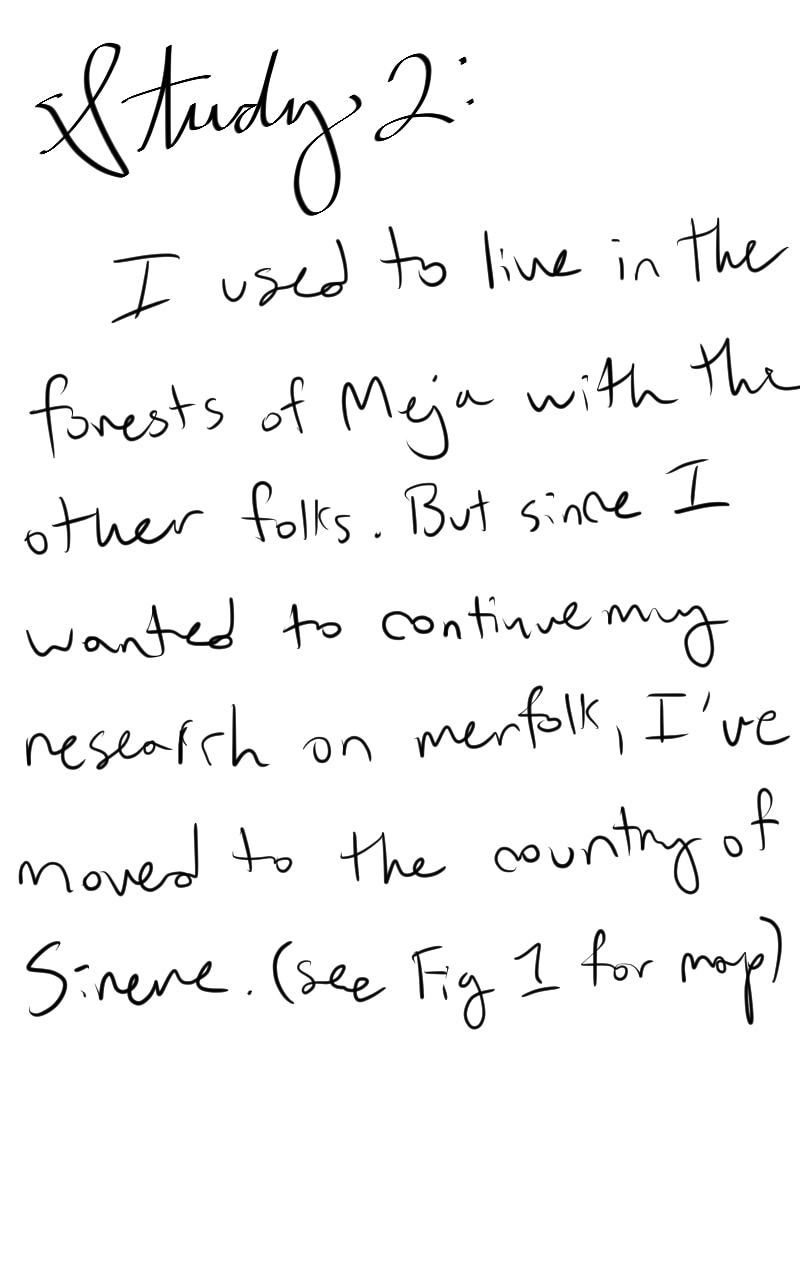 Study 2:
I used to live in the
forests of Meja with the
other folks. But since I
wanted to continue my
research on merfolk, I've
moved to the country of
Sirene. (see Fig 1 for map)